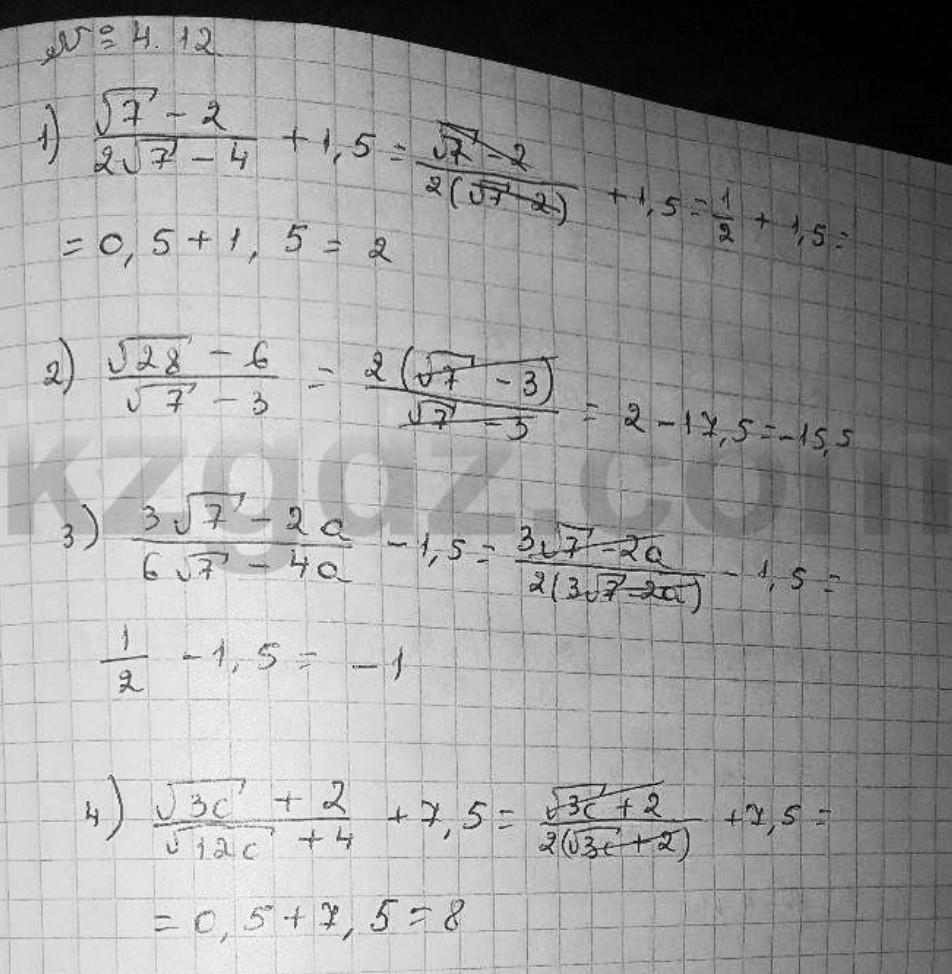 № 4.12
1) (√7 - 2)/(2√7 - 4) + 1,5 = (√7 - 2)/(2(√7 - 2)) + 1,5 = 1/2 + 1,5 =
= 0,5 + 1,5 = 2
2) (√28 - 6)/(√7 - 3) = (2(√7 - 3))/(√7 - 3) = 2 - 17,5 = -15,5
3) (3√7 - 2a)/(6√7 - 4a) - 1,5 = (3√7 - 2a)/(2(3√7 - 2a)) - 1,5 =
1/2 - 1,5 = -1
4) (√3c + 2)/(√12c + 4) + 7,5 = (√3c + 2)/(2(√3c + 2)) + 7,5 =
= 0,5 + 7,5 = 8
kzgdz.com